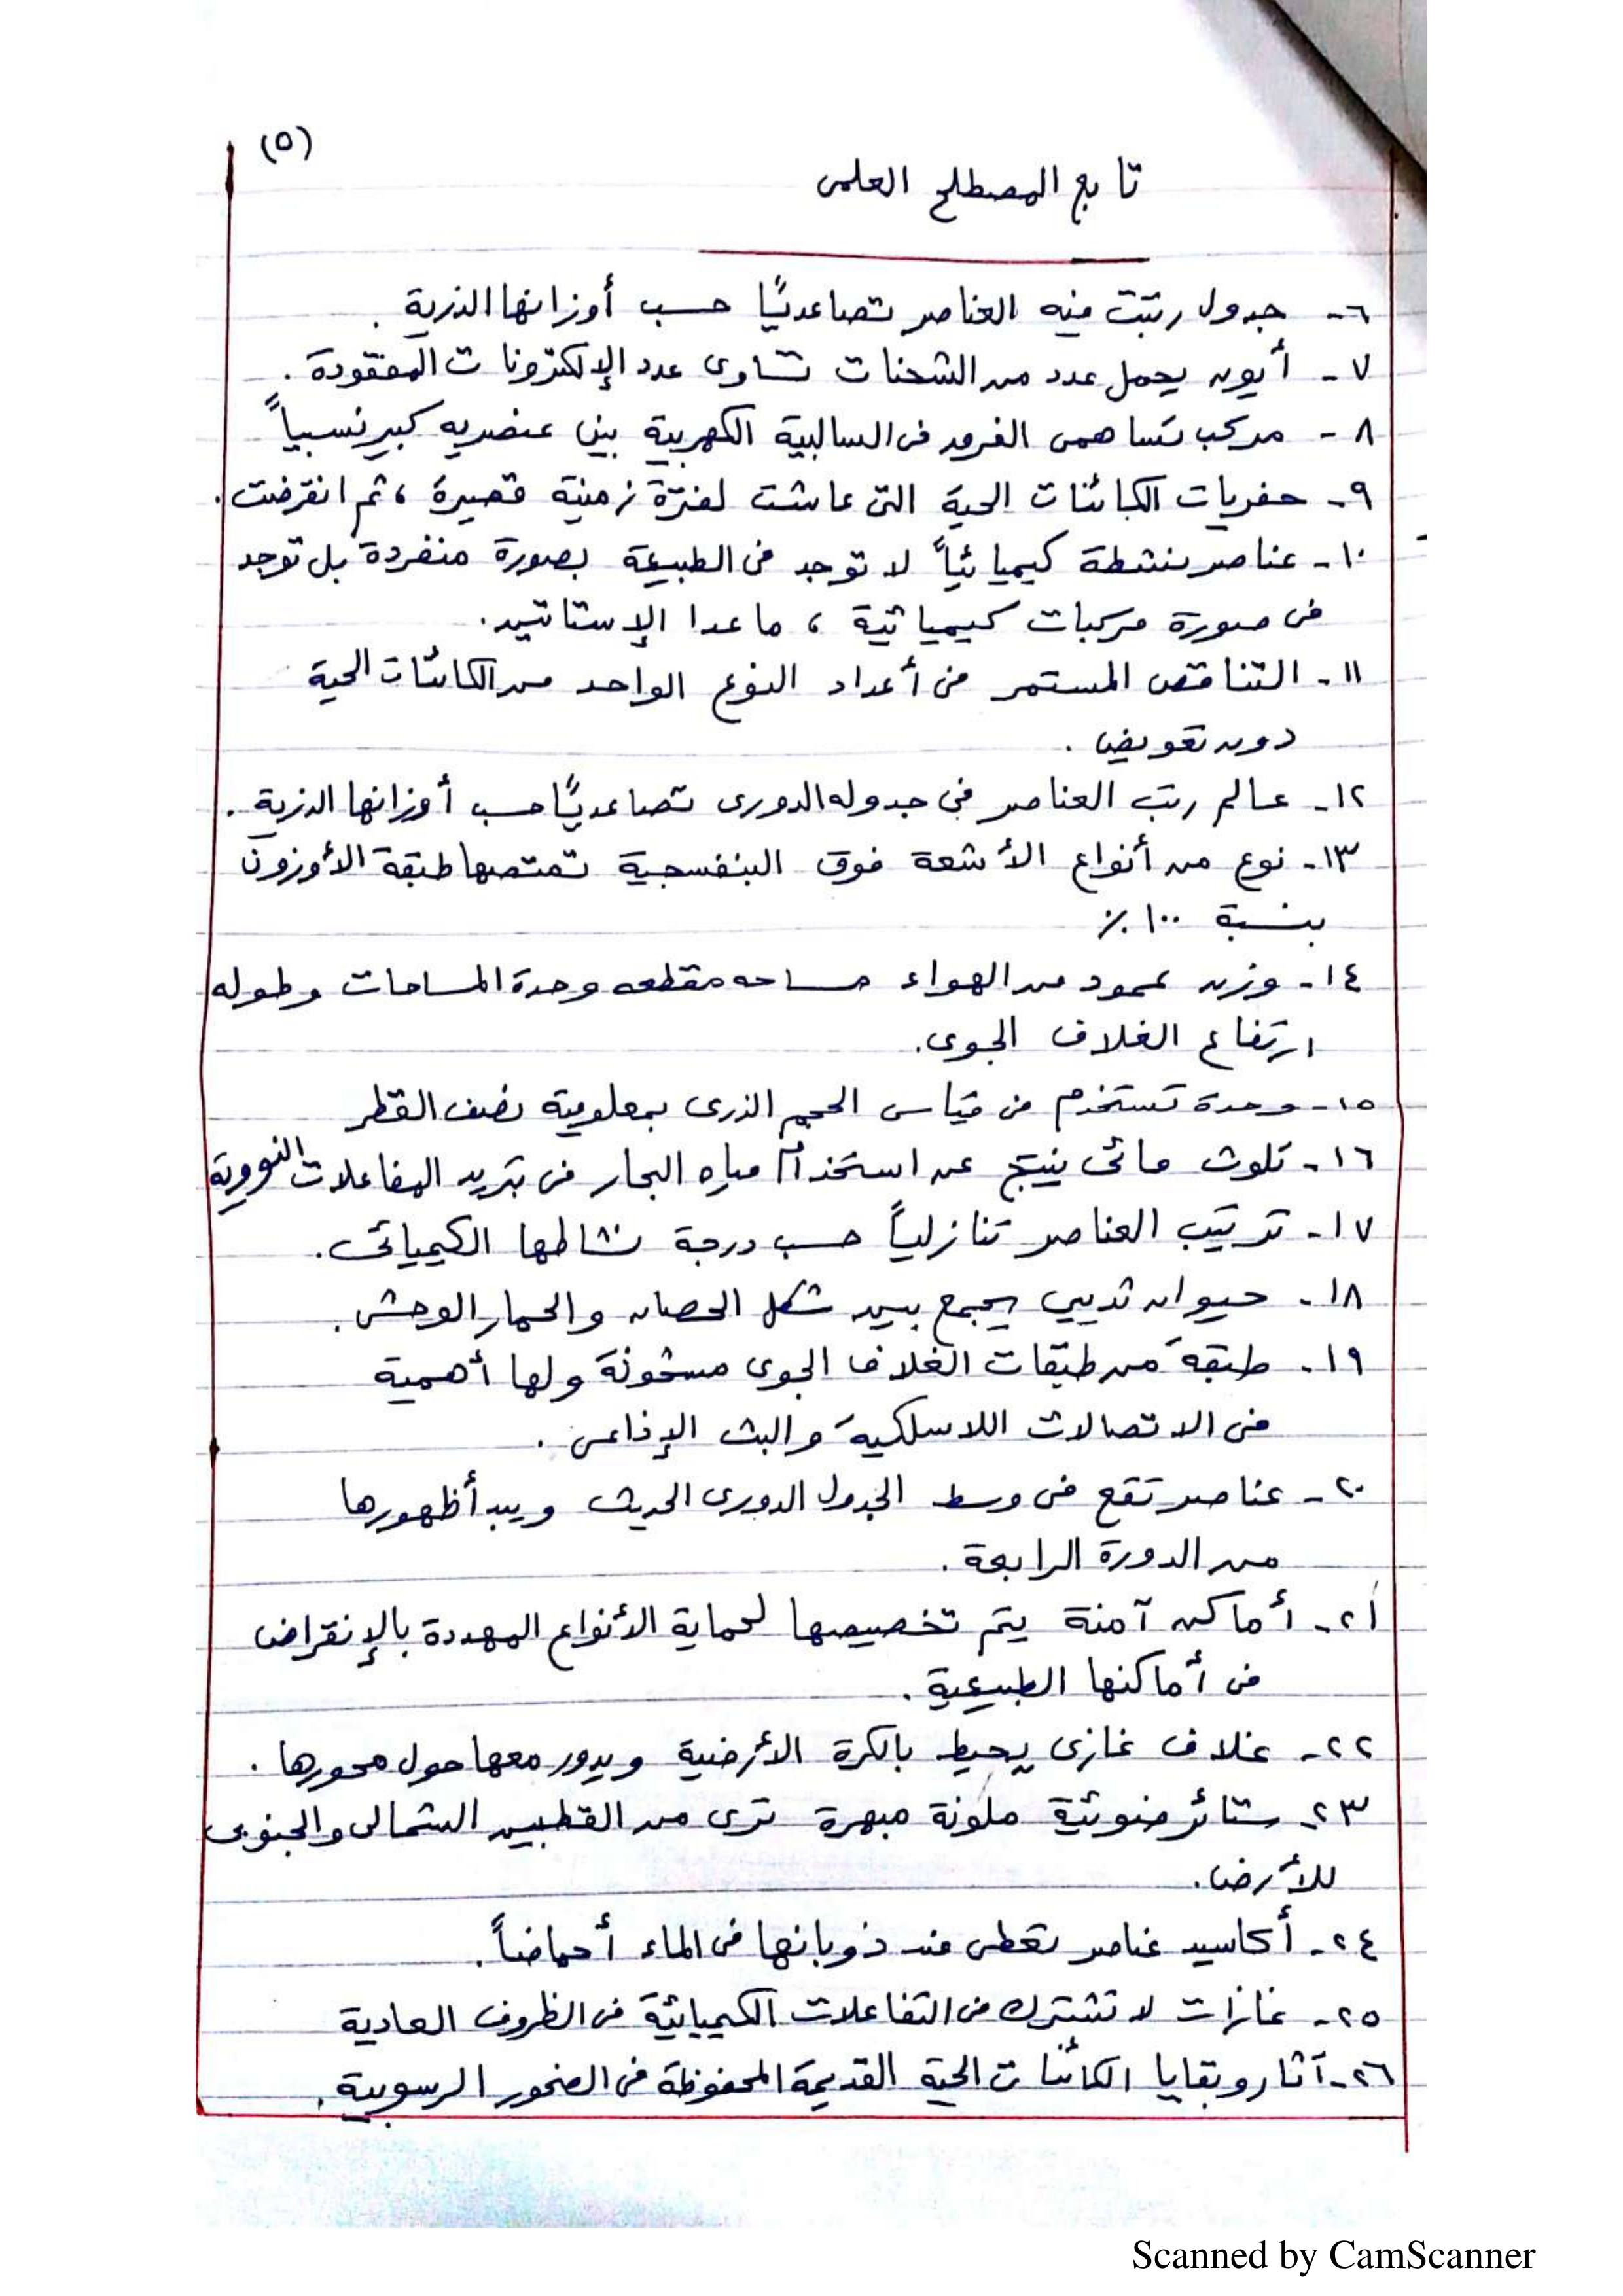 (٥)
تابع المصطلح العلمى
٦- جدول رتبت فيه العناصر تصاعديًا حسب أوزانها الذرية .
٧- أيون يحمل عدد من الشحنات تساوى عدد الإلكترونات المفقودة .
٨- مركب تساهمى الفرق فى السالبية الكهربية بين عنصريه كبير نسبياً
٩- حفريات الكائنات الحية التى عاشت لفترة زمنية قصيرة ، ثم انقرضت .
١٠- عناصر نشطة كيميائياً لا توجد فى الطبيعة بصورة منفردة بل توجد
فى صورة مركبات كيميائية ، ما عدا الإستاتين .
١١- التناقص المستمر فى أعداد النوع الواحد من الكائنات الحية
دون تعويض .
١٢- عالم رتب العناصر فى جدوله الدورى تصاعديًا حسب أوزانها الذرية .
١٣- نوع من أنواع الأشعة فوق البنفسجية تمتصها طبقة الأوزون
بنسبة ١٠٠ ٪
١٤- وزن عمود من الهواء مساحه مقطعه وحدة المساحات وطوله
ارتفاع الغلاف الجوى .
١٥- وحدة تستخدم فى قياس الحجم الذرى بمعلومية نصف القطر
١٦- تلوث مائى ينتج عن استخدام مياه البحار فى تبريد المفاعلات النووية
١٧- ترتيب العناصر تنازلياً حسب درجة نشاطها الكيميائى .
١٨- حيوان ثديي يجمع بين شكل الحصان والحمار الوحشى .
١٩- طبقة من طبقات الغلاف الجوى مشحونة ولها أهمية
فى الاتصالات اللاسلكية والبث الإذاعى .
٢٠- عناصر تقع فى وسط الجدول الدورى الحديث ويبدأ ظهورها
من الدورة الرابعة .
٢١- أماكن آمنة يتم تخصيصها لحماية الأنواع المهددة بالإنقراض
فى أماكنها الطبيعية .
٢٢- غلاف غازى يحيط بالكرة الأرضية ويدور معها حول محورها .
٢٣- ستائر ضوئية ملونة مبهرة ترى من القطبين الشمالى والجنوبى
للأرض .
٢٤- أكاسيد عناصر تعطى عند ذوبانها فى الماء أحماضاً .
٢٥- غازات لا تشترك فى التفاعلات الكيميائية فى الظروف العادية
٢٦- آثار وبقايا الكائنات الحية القديمة المحفوظة فى الصخور الرسوبية .
Scanned by CamScanner